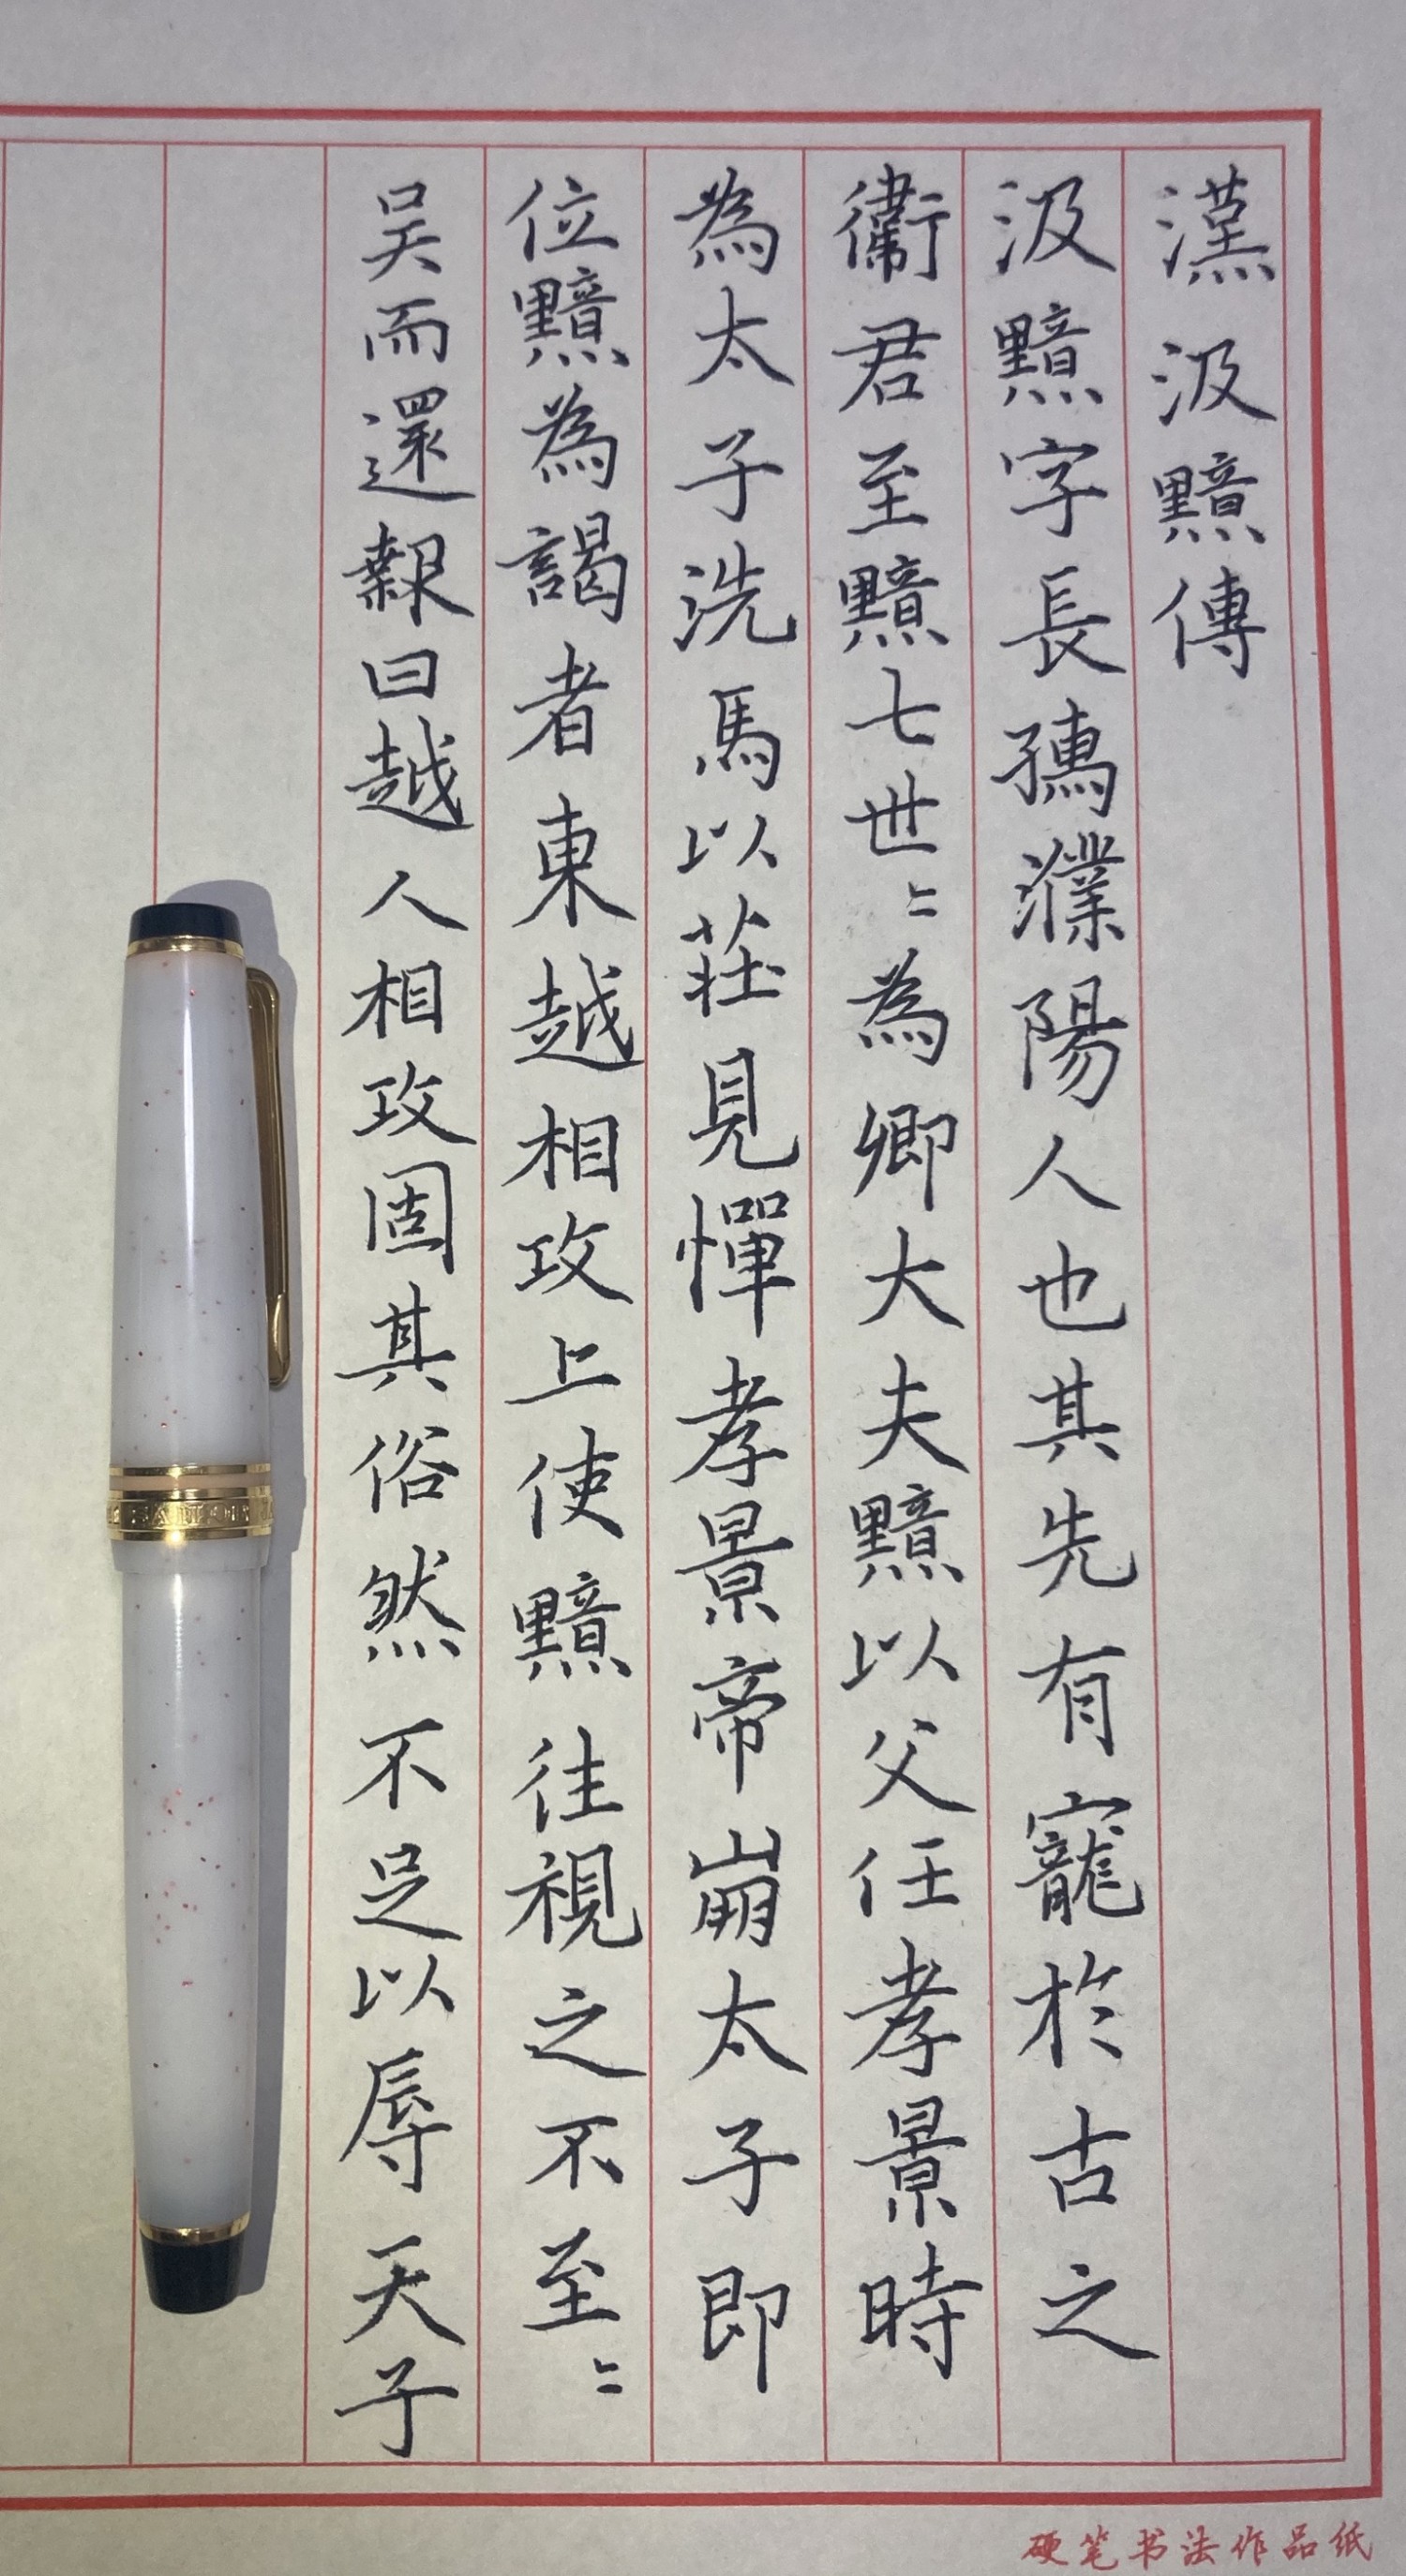 漢汲黯傳
汲黯字長孺濮陽人也其先有寵於古之
衞君至黯七世〻為卿大夫黯以父任孝景時
為太子洗馬以莊見憚孝景帝崩太子即
位黯為謁者東越相攻上使黯往視之不至〻
吳而還報曰越人相攻固其俗然不足以辱天子
硬笔书法作品纸